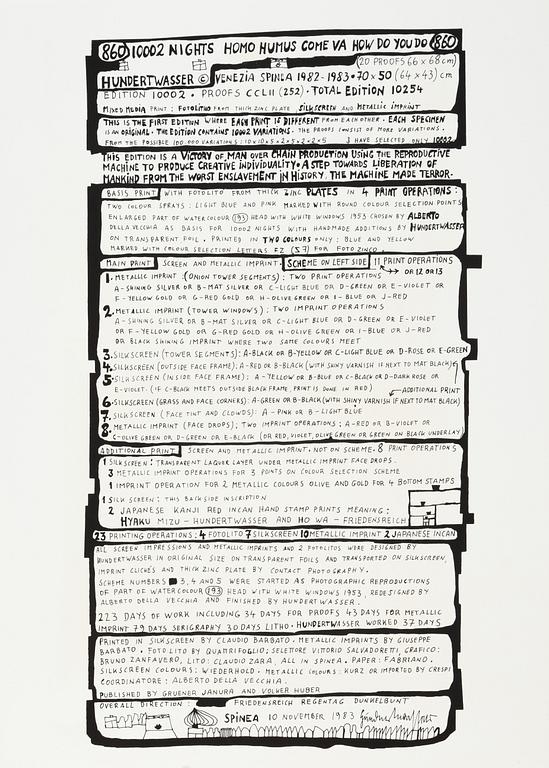 860 10002 NIGHTS HOMO HUMUS COME VA HOW DO YOU DO 860
(20 PROOFS 66 x 68 cm)
HUNDERTWASSER © VENEZIA SPINEA 1982-1983 • 70 x 50 (64 x 43) cm
EDITION 10002 • PROOFS CCLII (252) • TOTAL EDITION 10254
MIXED MEDIA PRINT: FOTOLITHO FROM THICK ZINC PLATE SILKSCREEN AND METALLIC IMPRINT
THIS IS THE FIRST EDITION WHERE EACH PRINT IS DIFFERENT FROM EACH OTHER. EACH SPECIMEN
IS AN ORIGINAL. THE EDITION CONTAINS 10002 VARIATIONS. THE PROOFS CONSIST OF MORE VARIATIONS.
FROM THE POSSIBLE 100.000 VARIATIONS: 10x10x5x2x5x2x2x5 I HAVE SELECTED ONLY 10002
THIS EDITION IS A VICTORY OF MAN OVER CHAIN PRODUCTION USING THE REPRODUCTIVE
MACHINE TO PRODUCE CREATIVE INDIVIDUALITY • A STEP TOWARDS LIBERATION OF
MANKIND FROM THE WORST ENSLAVEMENT IN HISTORY. THE MACHINE MADE TERROR.
BASIS PRINT WITH FOTOLITO FROM THICK ZINC PLATES IN 4 PRINT OPERATIONS:
TWO COLOUR SPRAYS: LIGHT BLUE AND PINK MARKED WITH ROUND COLOUR SELECTION POINTS
ENLARGED PART OF WATERCOLOUR 193 HEAD WITH WHITE WINDOWS 1953 CHOSEN BY ALBERTO
DELLA VECCHIA AS BASIS FOR 10002 NIGHTS WITH HANDMADE ADDITIONS BY HUNDERTWASSER
ON TRANSPARENT FOIL. PRINTED IN TWO COLOURS ONLY: BLUE AND YELLOW
MARKED WITH COLOUR SELECTION LETTERS FZ FOR FOTO ZINCO
MAIN PRINT SCREEN AND METALLIC IMPRINT. SCHEME ON LEFT SIDE 11 PRINT OPERATIONS
OR 12 OR 13
1. METALLIC IMPRINT: (ONION TOWER SEGMENTS): TWO PRINT OPERATIONS
A-SHINING SILVER OR B-MAT SILVER OR C-LIGHT BLUE OR D-GREEN OR E-VIOLET OR
F-YELLOW GOLD OR G-RED GOLD OR H-OLIVE GREEN OR I-BLUE OR J-RED
2. METALLIC IMPRINT (TOWER WINDOWS): TWO IMPRINT OPERATIONS
A-SHINING SILVER OR B-MAT SILVER OR C-LIGHT BLUE OR D-GREEN OR E-VIOLET
OR F-YELLOW GOLD OR G-RED GOLD OR H-OLIVE GREEN OR I-BLUE OR J-RED
OR BLACK SHINING IMPRINT WHERE TWO SAME COLOURS MEET
3. SILKSCREEN (TOWER SEGMENTS): A-BLACK OR B-YELLOW OR C-LIGHT BLUE OR D-ROSE OR E-GREEN
4. SILKSCREEN (OUTSIDE FACE FRAME): A-RED OR B-BLACK (WITH SHINY VARNISH IF NEXT TO MAT BLACK)
5. SILKSCREEN (INSIDE FACE FRAME): A-YELLOW OR B-BLUE OR C-BLACK OR D-DARK ROSE OR
E-VIOLET. (IF C-BLACK MEETS OUTSIDE BLACK FRAME, PRINT IS DONE IN RED) ADDITIONAL PRINT
6. SILKSCREEN (GRASS AND FACE CORNERS): A-GREEN OR B-BLACK (WITH SHINY VARNISH IF NEXT TO MAT BLACK)
7. SILKSCREEN (FACE TINT AND CLOWDS): A-PINK OR B-LIGHT BLUE
8. METALLIC IMPRINT (FACE DROPS): TWO IMPRINT OPERATIONS: A-RED OR B-VIOLET OR
C-OLIVE GREEN OR D-GREEN OR E-BLACK (OR RED, VIOLET, OLIVE GREEN OR GREEN ON BLACK UNDERLAY)
ADDITIONAL PRINT SCREEN AND METALLIC IMPRINT. NOT ON SCHEME. 8 PRINT OPERATIONS
1 SILKSCREEN: TRANSPARENT LAQUER LAYER UNDER METALLIC IMPRINT FACE DROPS.
3 METALLIC IMPRINT OPERATIONS FOR 3 POINTS ON COLOUR SELECTION SCHEME
1 IMPRINT OPERATION FOR 2 METALLIC COLOURS OLIVE AND GOLD FOR 4 BOTTOM STAMPS
1 SILK SCREEN: THIS BACKSIDE INSCRIPTION
2 JAPANESE KANJI RED INCAN HAND STAMP PRINTS MEANING:
HYAKU MIZU - HUNDERTWASSER AND HO WA - FRIEDENSREICH
23 PRINTING OPERATIONS: 4 FOTOLITO 7 SILKSCREEN 10 METALLIC IMPRINT 2 JAPANESE INCAN
ALL SCREEN IMPRESSIONS AND METALLIC IMPRINTS AND 2 FOTOLITOS WERE DESIGNED BY
HUNDERTWASSER IN ORIGINAL SIZE ON TRANSPARENT FOILS AND TRANSPORTED ON SILKSCREEN,
IMPRINT CLICHÉS AND THICK ZINC PLATE BY CONTACT PHOTOGRAPHY.
SCHEME NUMBERS 3, 4 AND 5 WERE STARTED AS PHOTOGRAPHIC REPRODUCTIONS
OF PART OF WATERCOLOUR 193 HEAD WITH WHITE WINDOWS 1953, REDESIGNED BY
ALBERTO DELLA VECCHIA AND FINISHED BY HUNDERTWASSER.
223 DAYS OF WORK INCLUDING 34 DAYS FOR PROOFS 43 DAYS FOR METALLIC
IMPRINT 79 DAYS SERIGRAPHY 30 DAYS LITHO • HUNDERTWASSER WORKED 37 DAYS
PRINTED IN SILKSCREEN BY CLAUDIO BARBATO. METALLIC IMPRINTS BY GIUSEPPE
BARBATO. FOTOLITO BY QUAMRIFOGLIO; SELETTORE VITTORIO SALVADORETTI, GRAFICO:
BRUNO ZANFAVERO, LITO: CLAUDIO ZARA, ALL IN SPINEA. PAPER: FABRIANO.
SILKSCREEN COLOURS: WIEDERHOLD. METALLIC COLOURS: KURZ OR IMPORTED BY CRESPI
COORDINATORE: ALBERTO DELLA VECCHIA.
PUBLISHED BY GRUENER JANURA AND VOLKER HUBER
OVERALL DIRECTION: FRIEDENSREICH REGENTAG DUNKELBUNT
SPINEA 10 NOVEMBER 1983 Hundertwasser